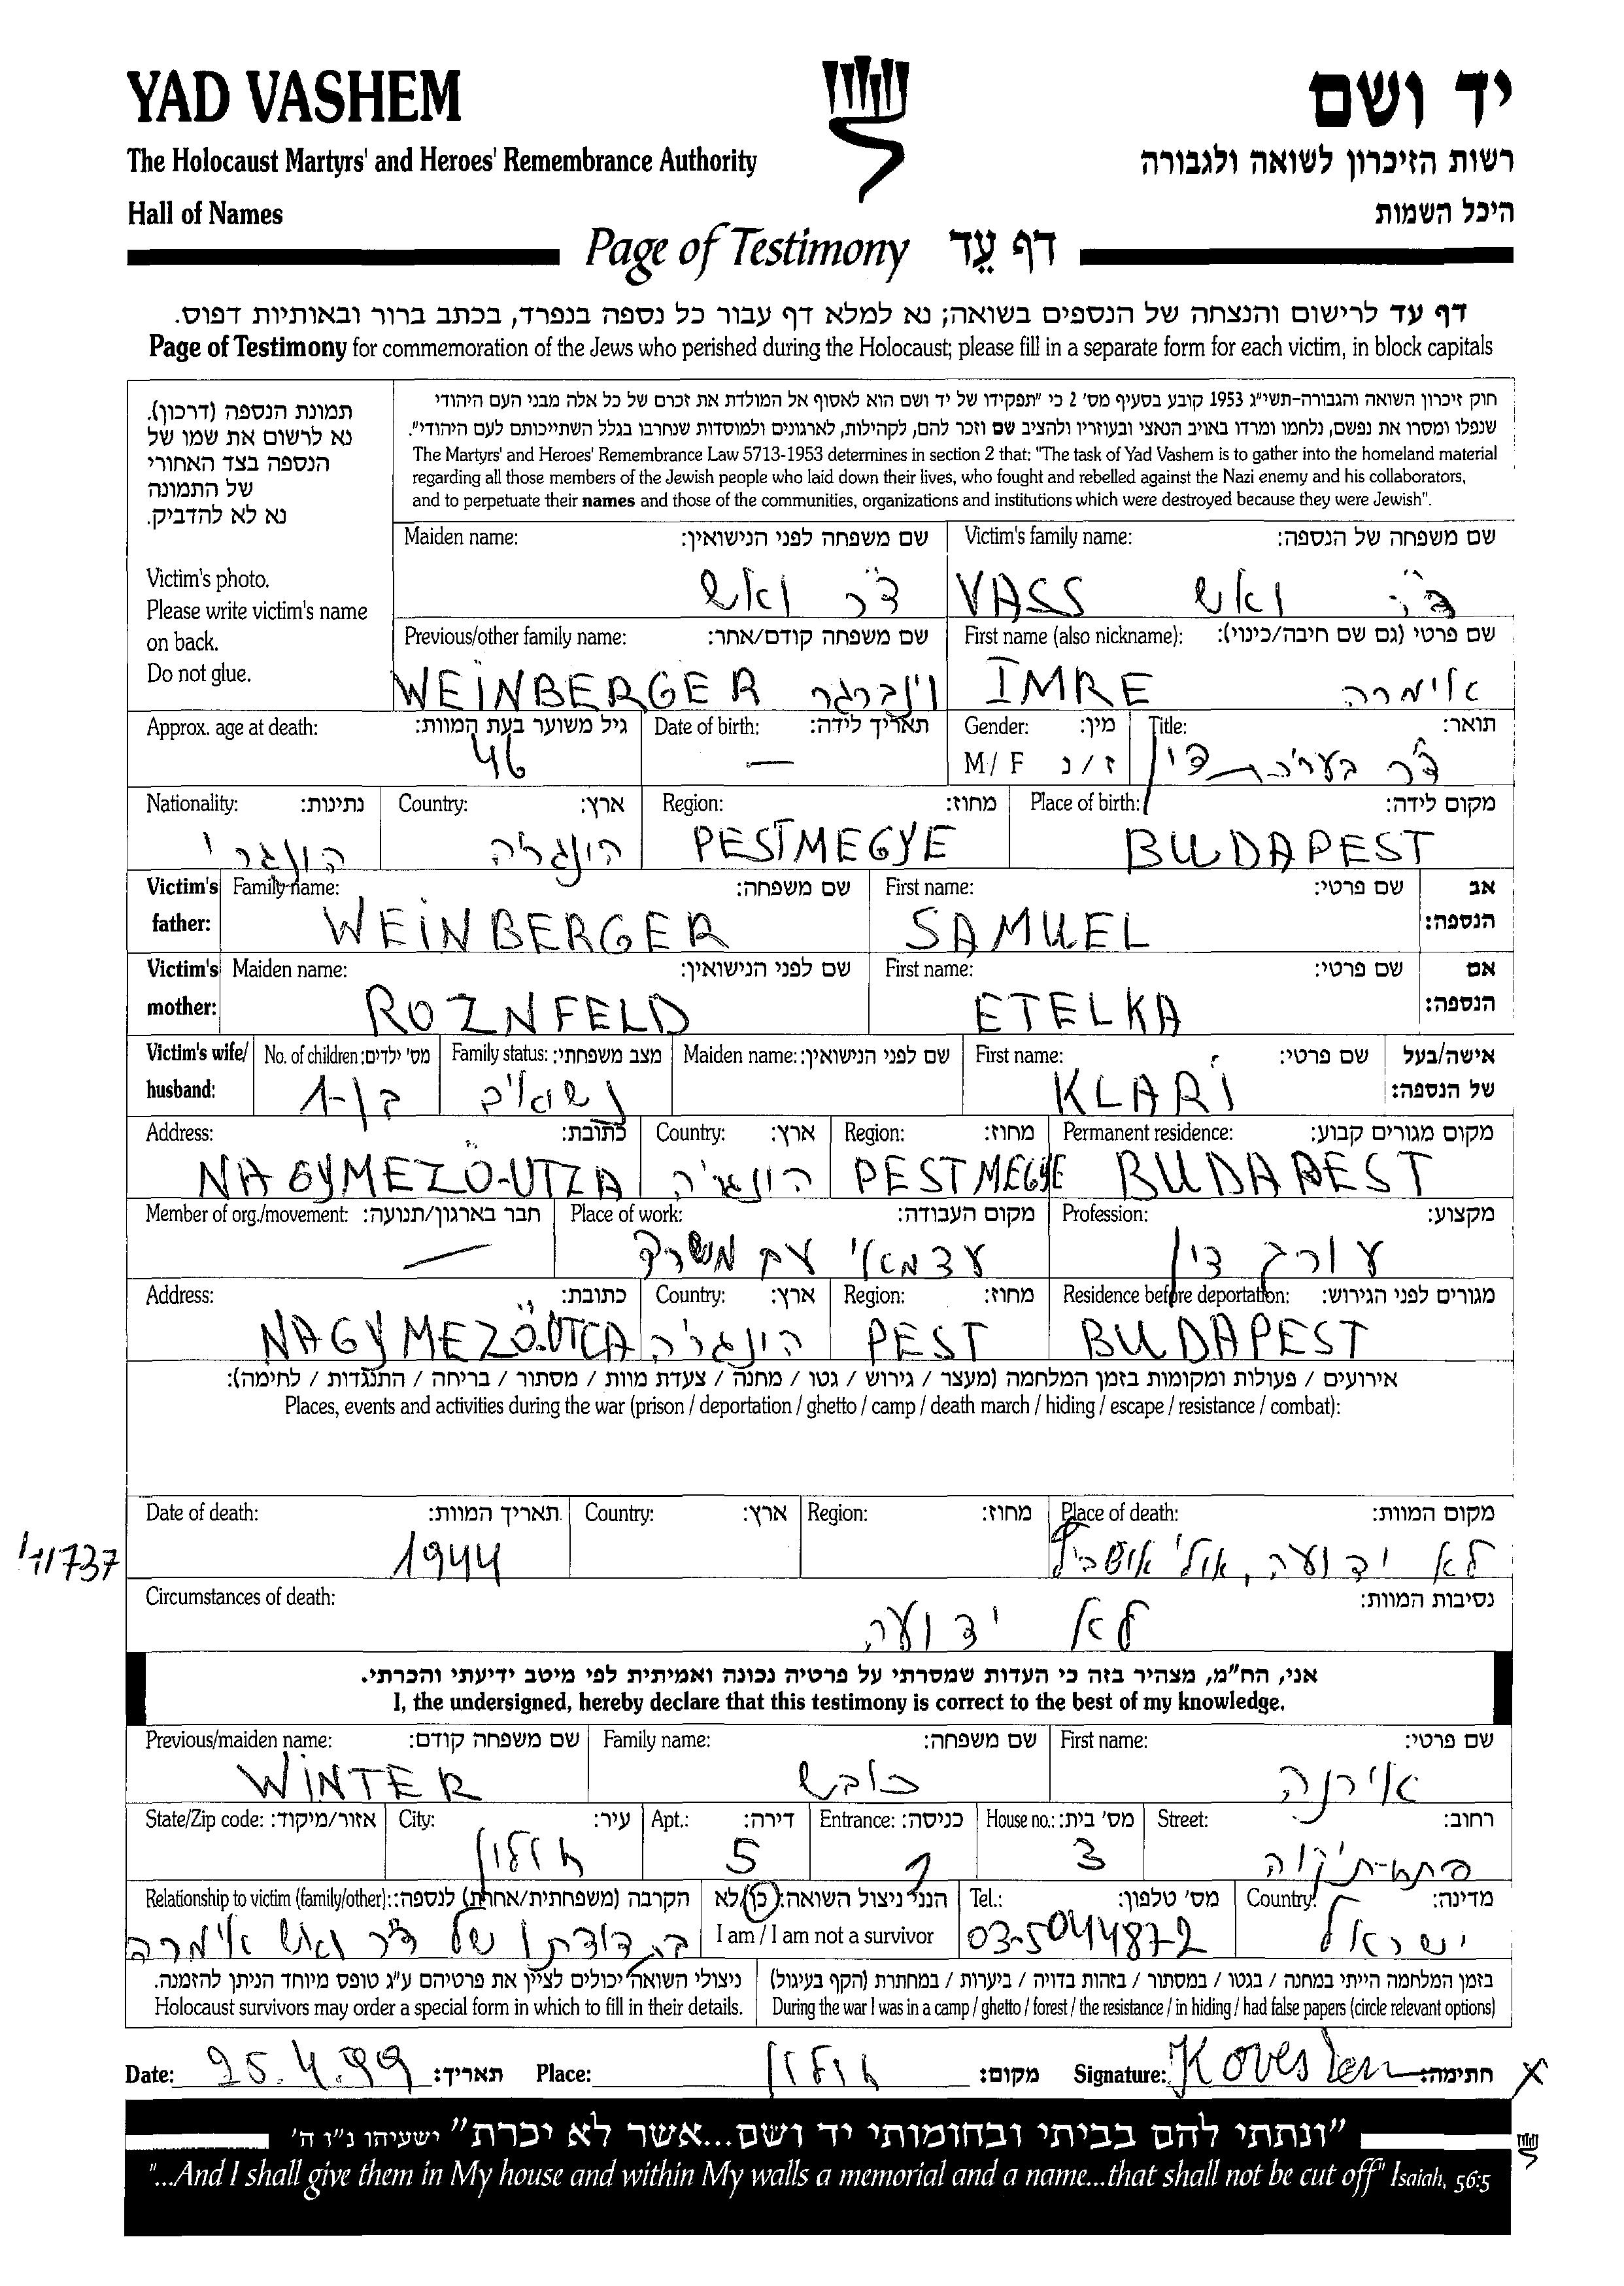 YAD VASHEM יד ושם
The Holocaust Martyrs' and Heroes' Remembrance Authority רשות הזיכרון לשואה ולגבורה
Hall of Names היכל השמות
Page of Testimony דף עֵד
דף עד לרישום והנצחה של הנספים בשואה; נא למלא דף עבור כל נספה בנפרד, בכתב ברור ובאותיות דפוס.
Page of Testimony for commemoration of the Jews who perished during the Holocaust; please fill in a separate form for each victim, in block capitals
תמונת הנספה (דרכון).
נא לרשום את שמו של
הנספה בצד האחורי
של התמונה
נא לא להדביק.
Victim's photo.
Please write victim's name
on back.
Do not glue.
חוק זיכרון השואה והגבורה-תשי"ג 1953 קובע בסעיף מס' 2 כי "תפקידו של יד ושם הוא לאסוף אל המולדת את זכרם של כל אלה מבני העם היהודי
שנפלו ומסרו את נפשם, נלחמו ומרדו באויב הנאצי ובעוזריו ולהציב שם וזכר להם, לקהילות, לארגונים ולמוסדות שנחרבו בגלל השתייכותם לעם היהודי".
The Martyrs' and Heroes' Remembrance Law 5713-1953 determines in section 2 that: "The task of Yad Vashem is to gather into the homeland material
regarding all those members of the Jewish people who laid down their lives, who fought and rebelled against the Nazi enemy and his collaborators,
and to perpetuate their names and those of the communities, organizations and institutions which were destroyed because they were Jewish".
Maiden name: שם משפחה לפני הנישואין: Victim's family name: שם משפחה של הנספה:
ד"ר ואש VASS ד"ר ואש
Previous/other family name: שם משפחה קודם/אחר: First name (also nickname): שם פרטי (גם שם חיבה/כינוי):
WEINBERGER וינברגר IMRE אימרה
Approx. age at death: גיל משוער בעת המוות: Date of birth: תאריך לידה: Gender: מין: Title: תואר:
46 — M / F ז / נ ד"ר דין
Nationality: נתינות: Country: ארץ: Region: מחוז: Place of birth: מקום לידה:
הונגרי הונגריה PESTMEGYE BUDAPEST
Victim's father: Family name: שם משפחה: First name: שם פרטי: אב הנספה:
WEINBERGER SAMUEL
Victim's mother: Maiden name: שם לפני הנישואין: First name: שם פרטי: אם הנספה:
ROZNFELD ETELKA
Victim's wife/ husband: No. of children: מס' ילדים: Family status: מצב משפחתי: Maiden name: שם לפני הנישואין: First name: שם פרטי: אישה/בעל של הנספה:
1-בן נשואים KLARI
Address: כתובת: Country: ארץ: Region: מחוז: Permanent residence: מקום מגורים קבוע:
NAGYMEZÖ-UTZA הונגריה PESTMEGYE BUDAPEST
Member of org./movement: חבר בארגון/תנועה: Place of work: מקום העבודה: Profession: מקצוע:
— עצמאי עם משרד עורך דין
Address: כתובת: Country: ארץ: Region: מחוז: Residence before deportation: מגורים לפני הגירוש:
NAGYMEZÖ.UTCA הונגריה PEST BUDAPEST
אירועים / פעולות ומקומות בזמן המלחמה (מעצר / גירוש / גטו / מחנה / צעדת מוות / מסתור / בריחה / התנגדות / לחימה):
Places, events and activities during the war (prison / deportation / ghetto / camp / death march / hiding / escape / resistance / combat):
Date of death: תאריך המוות: Country: ארץ: Region: מחוז: Place of death: מקום המוות:
1944 לא ידועה, אולי
Circumstances of death: נסיבות המוות:
לא ידועה
אני, הח"מ, מצהיר בזה כי העדות שמסרתי על פרטיה נכונה ואמיתית לפי מיטב ידיעתי והכרתי.
I, the undersigned, hereby declare that this testimony is correct to the best of my knowledge.
Previous/maiden name: שם משפחה קודם: Family name: שם משפחה: First name: שם פרטי:
WINTER כובש אירנה
State/Zip code: אזור/מיקוד: City: עיר: Apt.: דירה: Entrance: כניסה: House no.: מס' בית: Street: רחוב:
חולון 5 1 3 פתח-תקוה
Relationship to victim (family/other): הקרבה (משפחתית/אחרת) לנספה: הנני ניצול השואה: כן/לא Tel.: מס' טלפון: Country: מדינה:
בת דודתו של ד"ר ואש אימרה I am / I am not a survivor 03-5044872 ישראל
ניצולי השואה יכולים לציין את פרטיהם ע"ג טופס מיוחד הניתן להזמנה. בזמן המלחמה הייתי במחנה / בגטו / במסתור / בזהות בדויה / ביערות / במחתרת (הקף בעיגול)
Holocaust survivors may order a special form in which to fill in their details. During the war I was in a camp / ghetto / forest / the resistance / in hiding / had false papers (circle relevant options)
Date: 25.4.99 תאריך: Place: חולון מקום: Signature: חתימה: X
"ונתתי להם בביתי ובחומותי יד ושם...אשר לא יכרת" ישעיהו נ"ו ה'
"...And I shall give them in My house and within My walls a memorial and a name...that shall not be cut off" Isaiah, 56:5